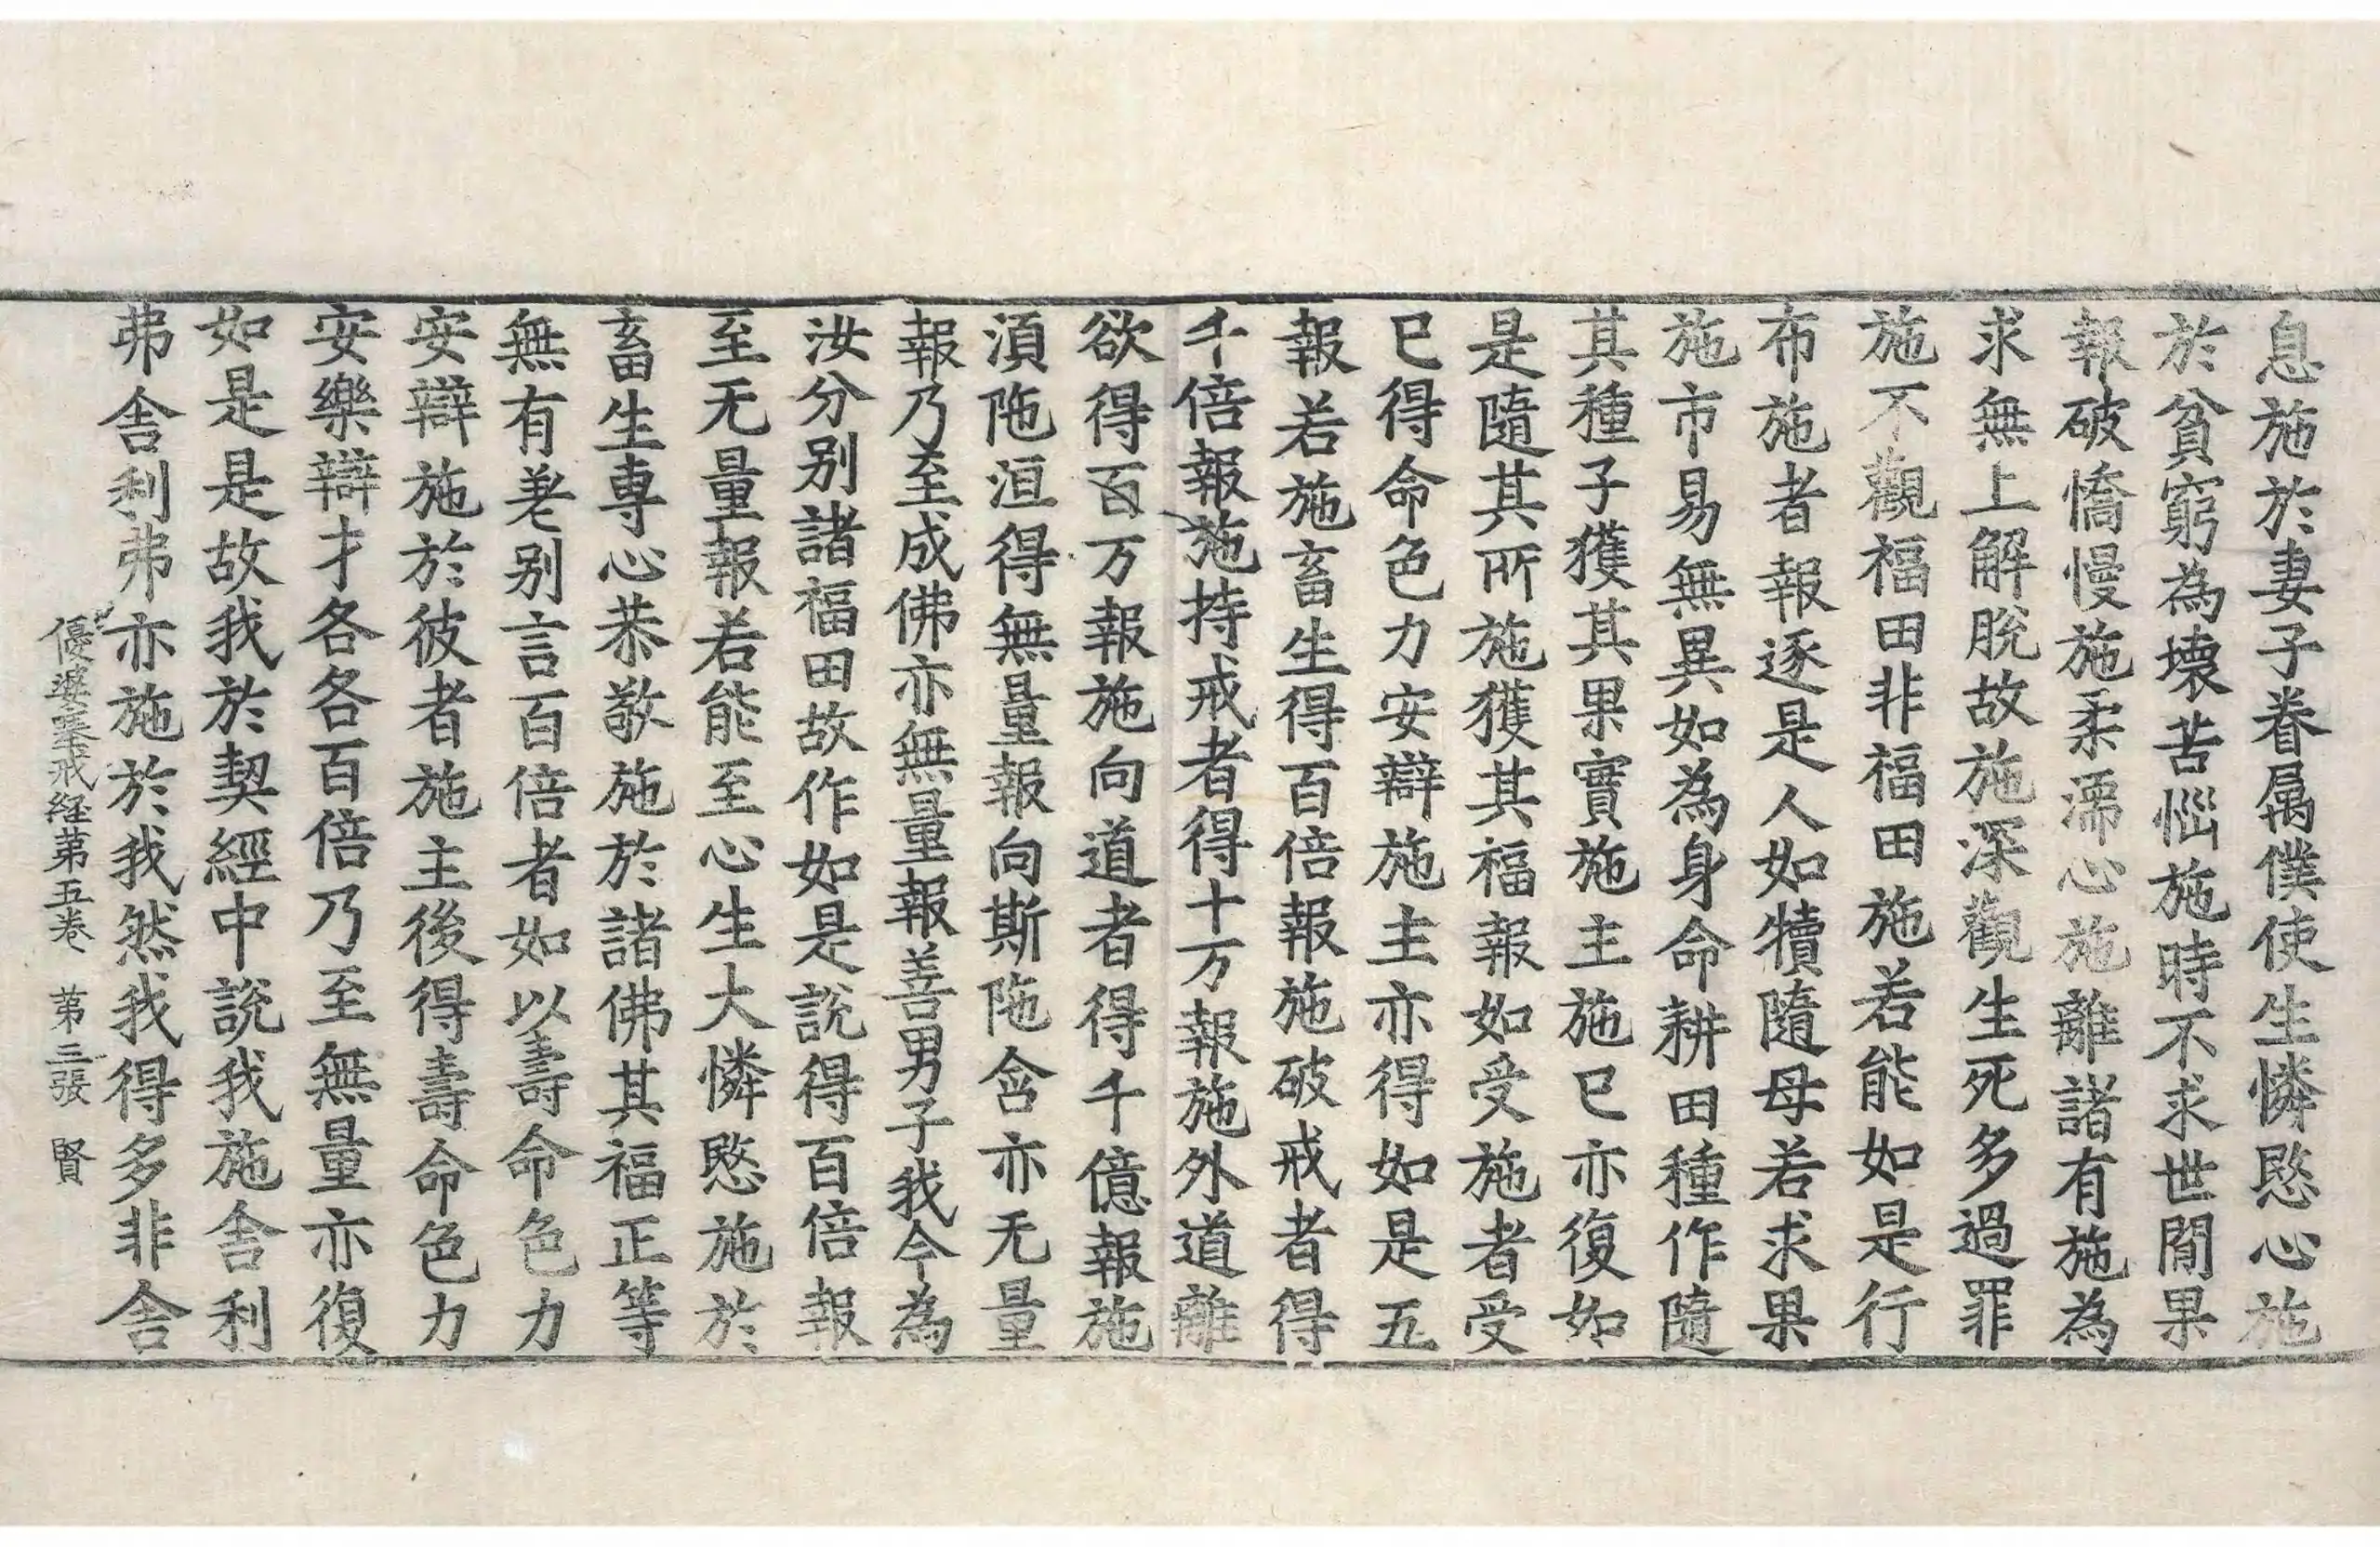 息施於妻子眷属僕使生憐愍心施
於貧窮為壞苦惱施時不求世間果
報破憍慢施柔濡心施離諸有施為
求無上解脫故施深觀生死多過罪
施不觀福田非福田施若能如是行
布施者報逐是人如犢隨母若求果
施市易無異如為身命耕田種作隨
其種子獲其果實施主施已亦復如
是隨其所施獲其福報如受施者受
已得命色力安辯施主亦得如是五
報若施畜生得百倍報施破戒者得
千倍報施持戒者得十万報施外道離
欲得百万報施向道者得千億報施
湏陁洹得無量報向斯陁含亦无量
報乃至成佛亦無量報善男子我今為
汝分别諸福田故作如是說得百倍報
至无量報若能至心生大憐愍施於
畜生專心恭敬施於諸佛其福正等
無有差别言百倍者如以壽命色力
安辯施於彼者施主後得壽命色力
安樂辯才各各百倍乃至無量亦復
如是是故我於契經中說我施舍利
弗舍利弗亦施於我然我得多非舍
優婆塞戒経苐五卷 苐三張 賢